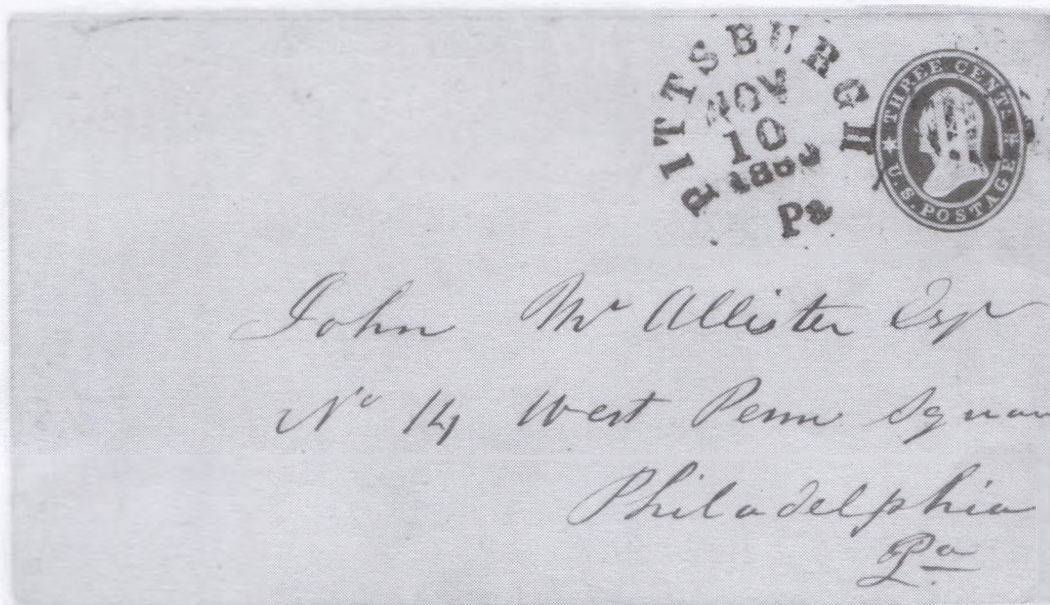 PITTSBURGH
NOV
10
Pa
THREE CENTS
U.S. POSTAGE
John McAllister Esqr
No 14 West Penn Squar
Philadelphia
Pa